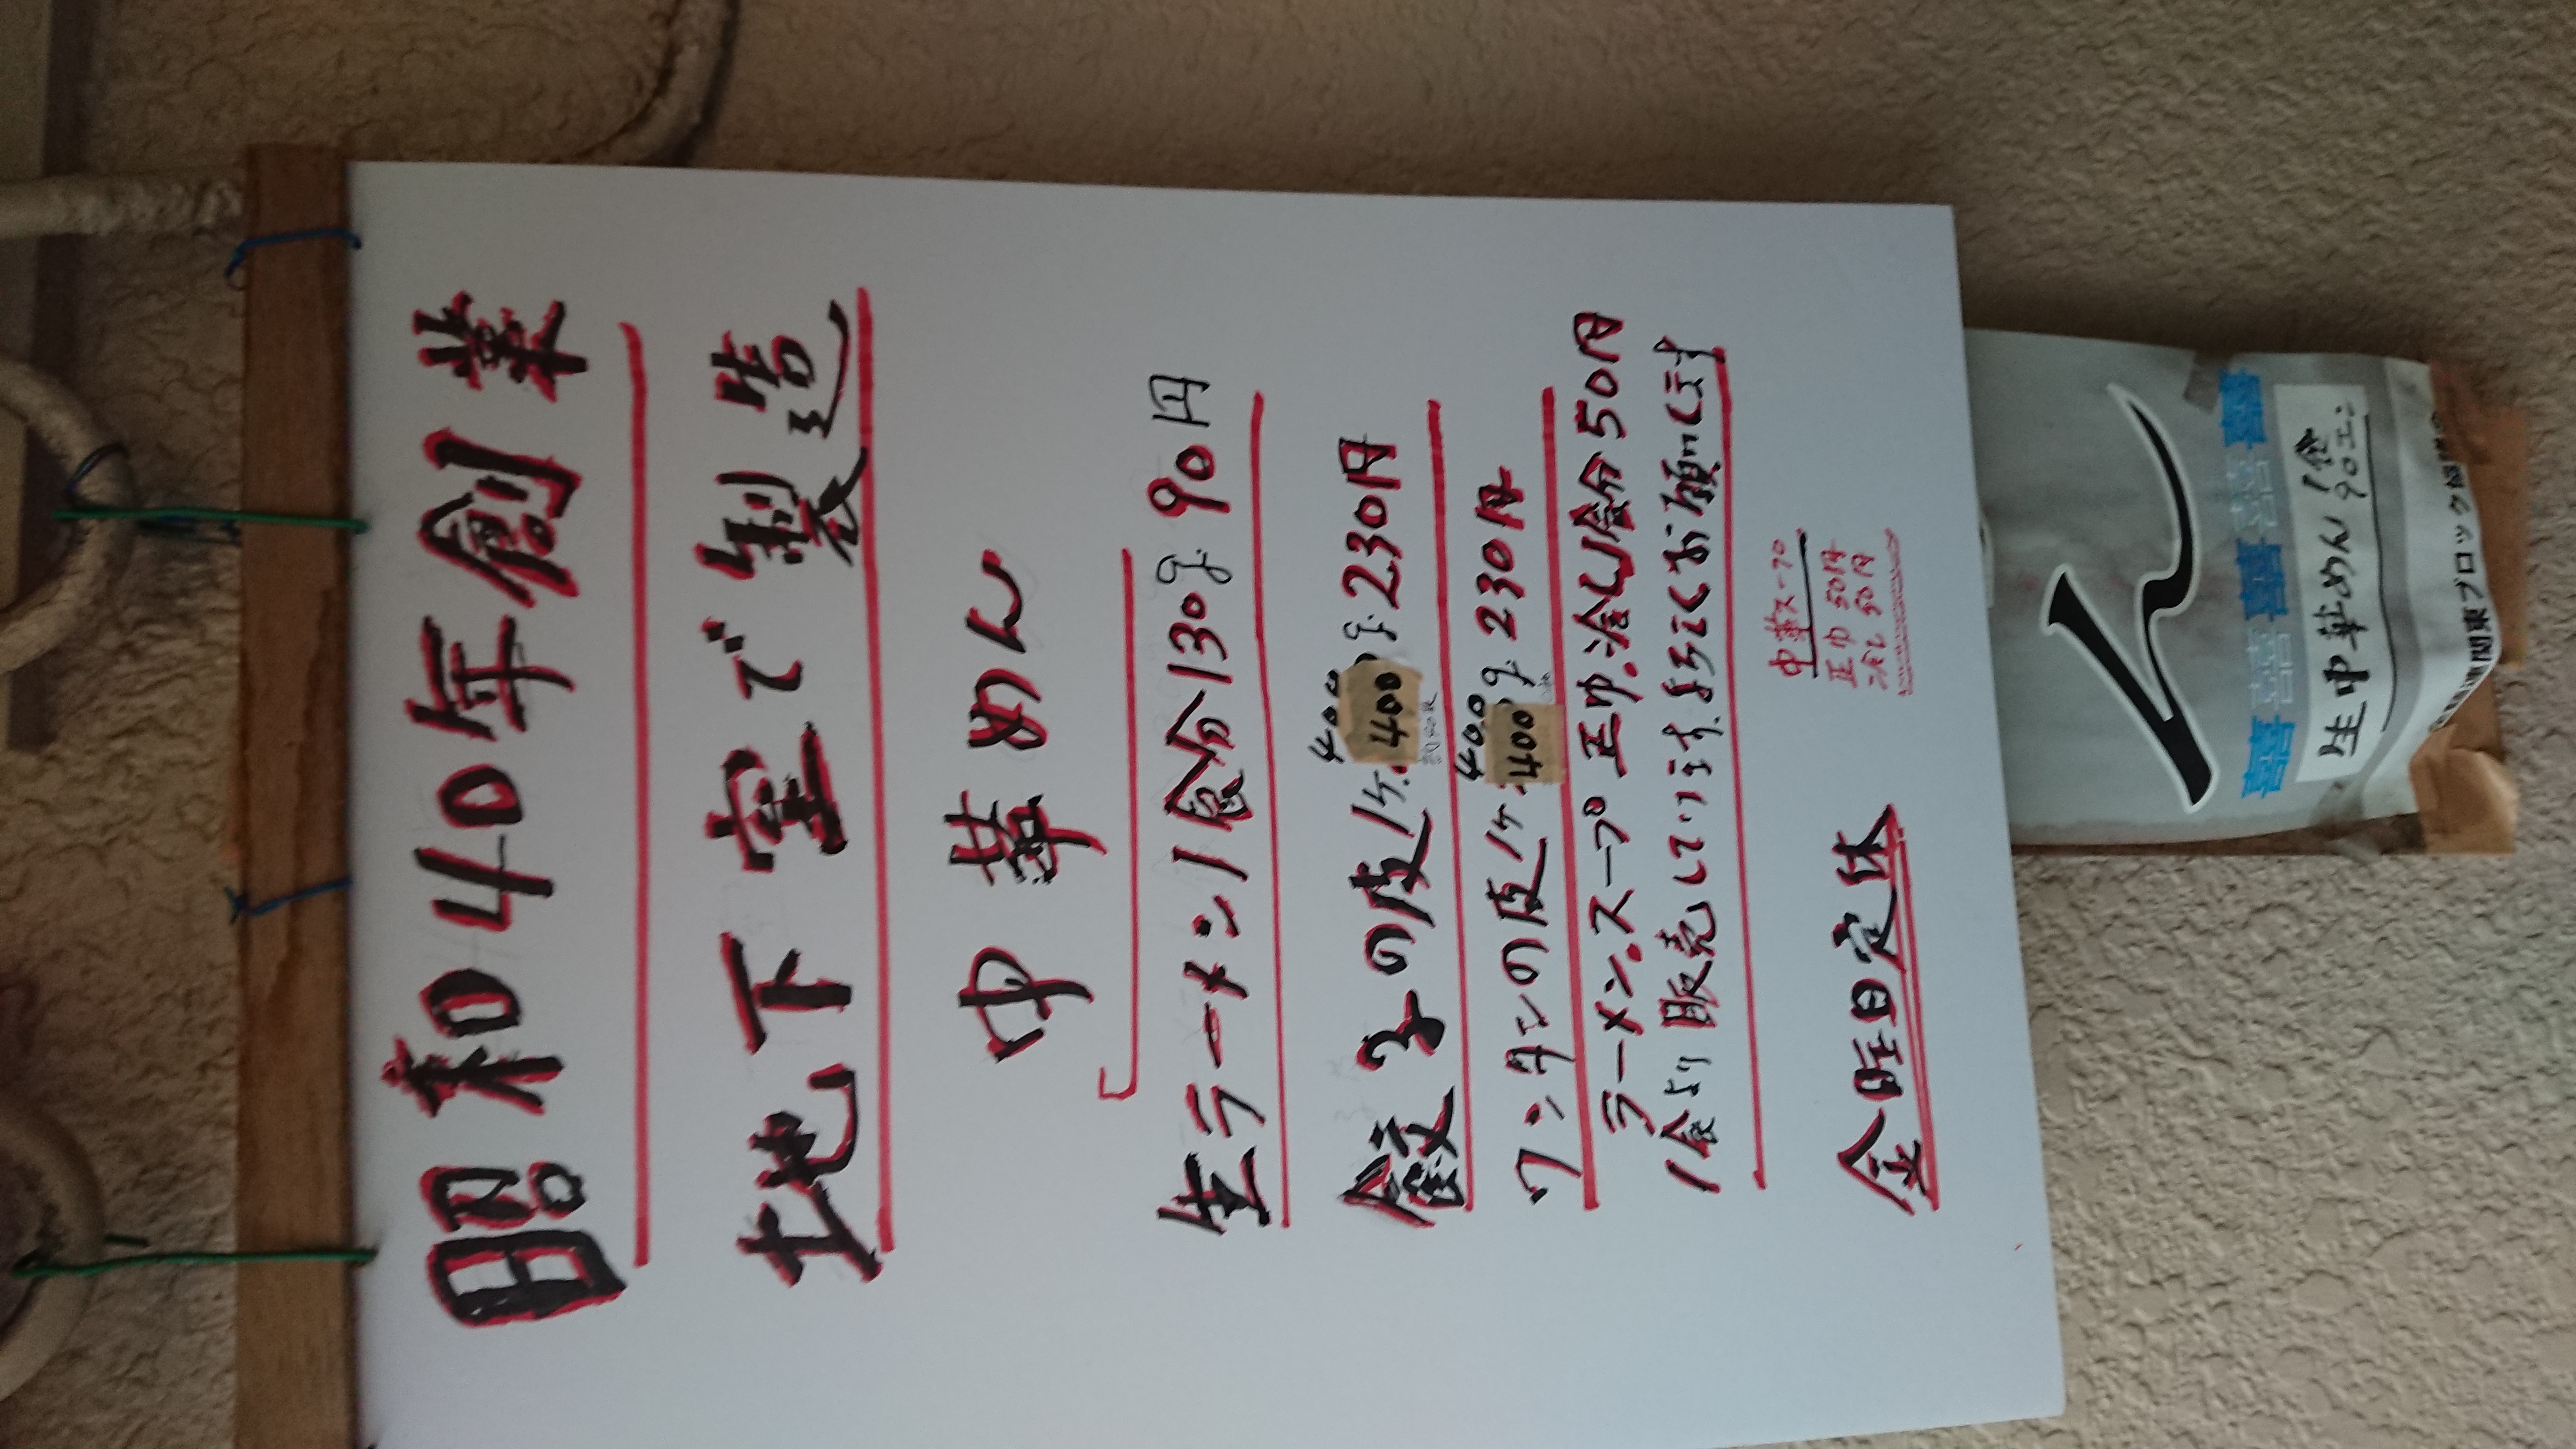 昭和40年創業
地下室で製造
中華めん
生ラーメン1食分130g 90円
400
餃子の皮1ヶ 400g 230円
400
ワンタンの皮1ヶ 400g 230円
ラーメンスープ 正巾.冷し1食分50円
1食より販売しています.よろしくお願いします
中華スープ
正巾 50円
冷し 50円
金曜日定休
生中華めん1食
90エン
関東ブロック